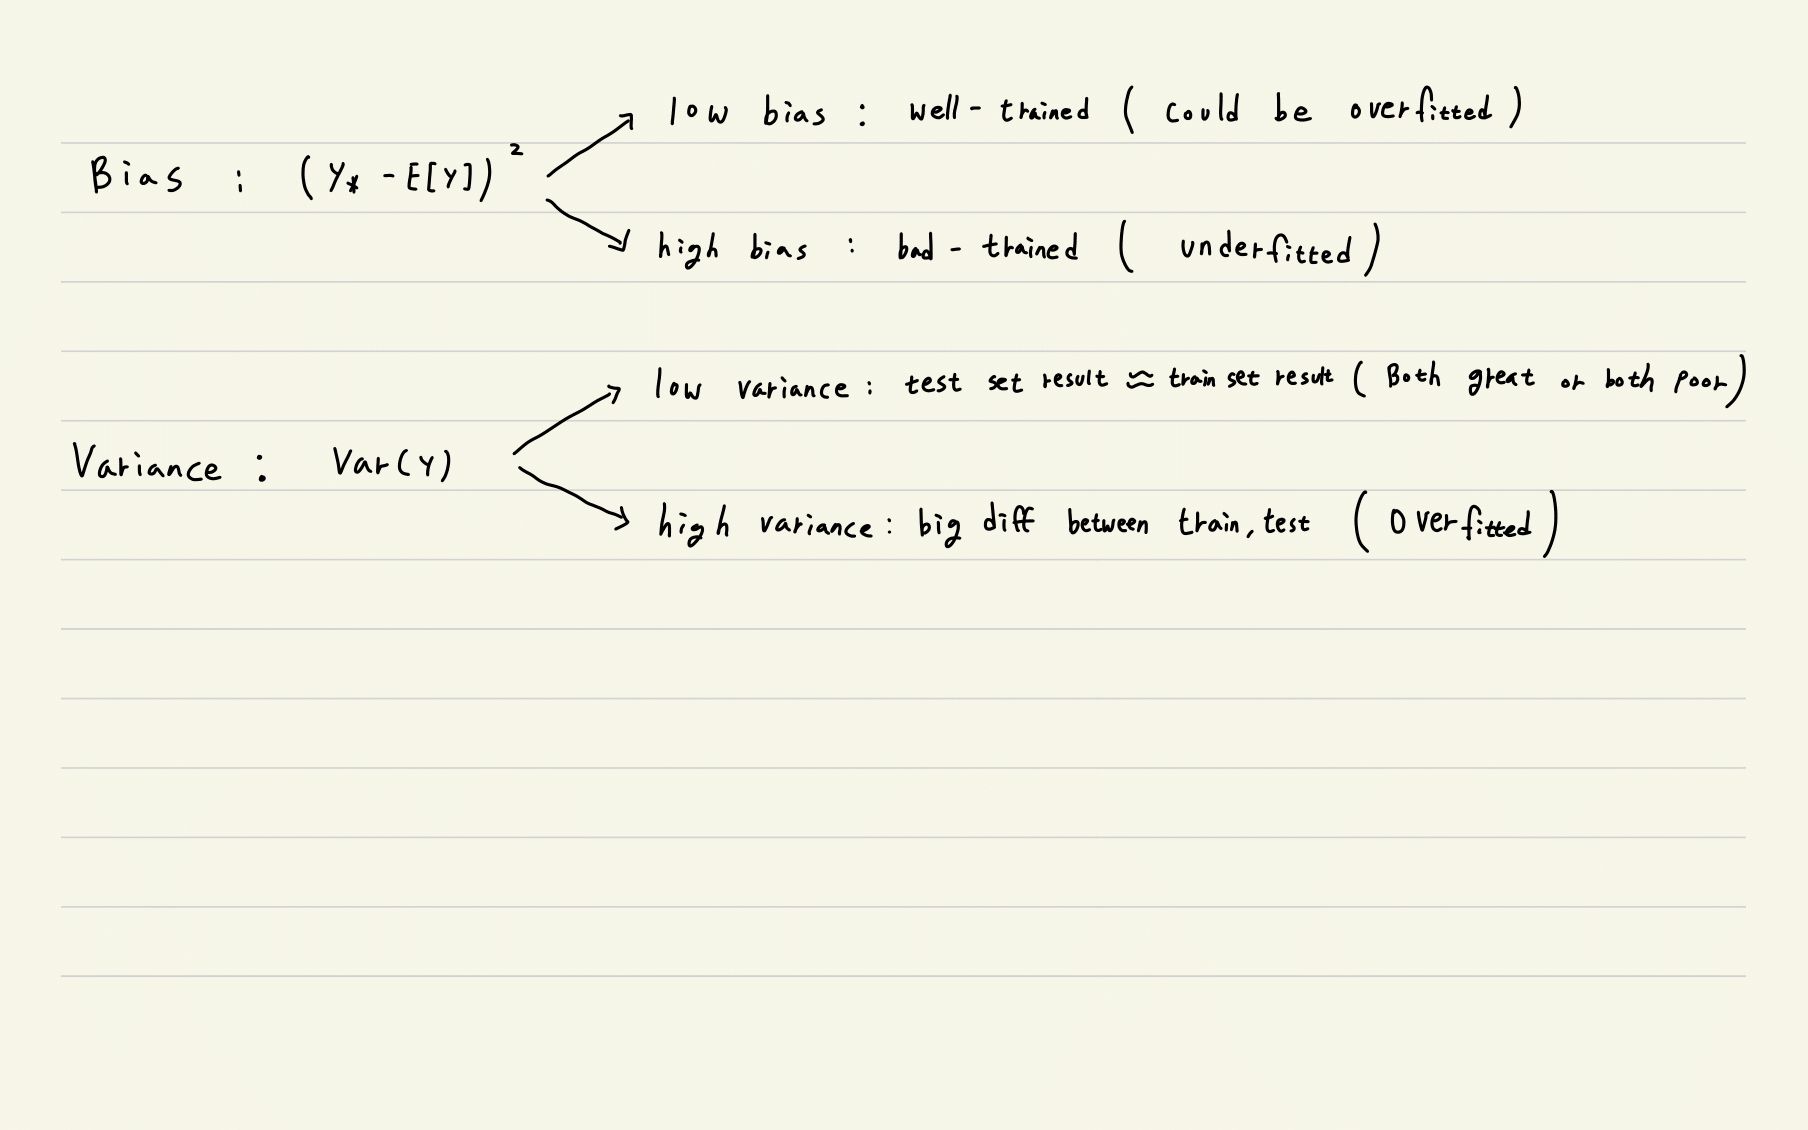 low bias : well-trained ( could be overfitted )
Bias : (Y* - E[Y])²
high bias : bad-trained ( underfitted )
low variance : test set result ≈ train set result ( Both great or both poor )
Variance : Var(Y)
high variance : big diff between train, test ( Overfitted )